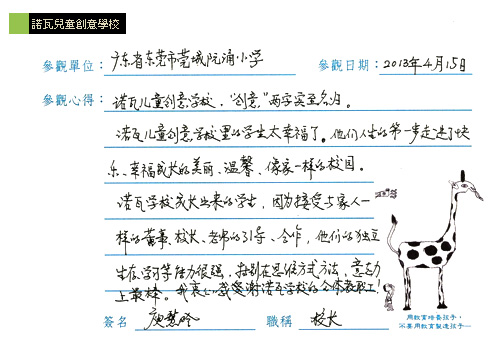 諾瓦兒童創意學校
參觀單位：广东省东莞市莞城阮涌小学 參觀日期：2013年4月15日
參觀心得：诺瓦儿童创意学校，“创意”两字实至名归。
诺瓦儿童创意学校里的学生太幸福了。他们人生的第一步走进了快
乐、幸福成长的美丽、温馨、像家一样的校园。
诺瓦学校成长出来的学生，因为接受与家人一
样的董事、校长、老师的引导、合作，他们的独立
生存、学习等能力很强，特别在思维方式方法，意志力
上最棒。我衷心感谢诺瓦学校的全体教职工！
簽名 慧 職稱 校长
用教育培養孩子，
不要用教育製造孩子